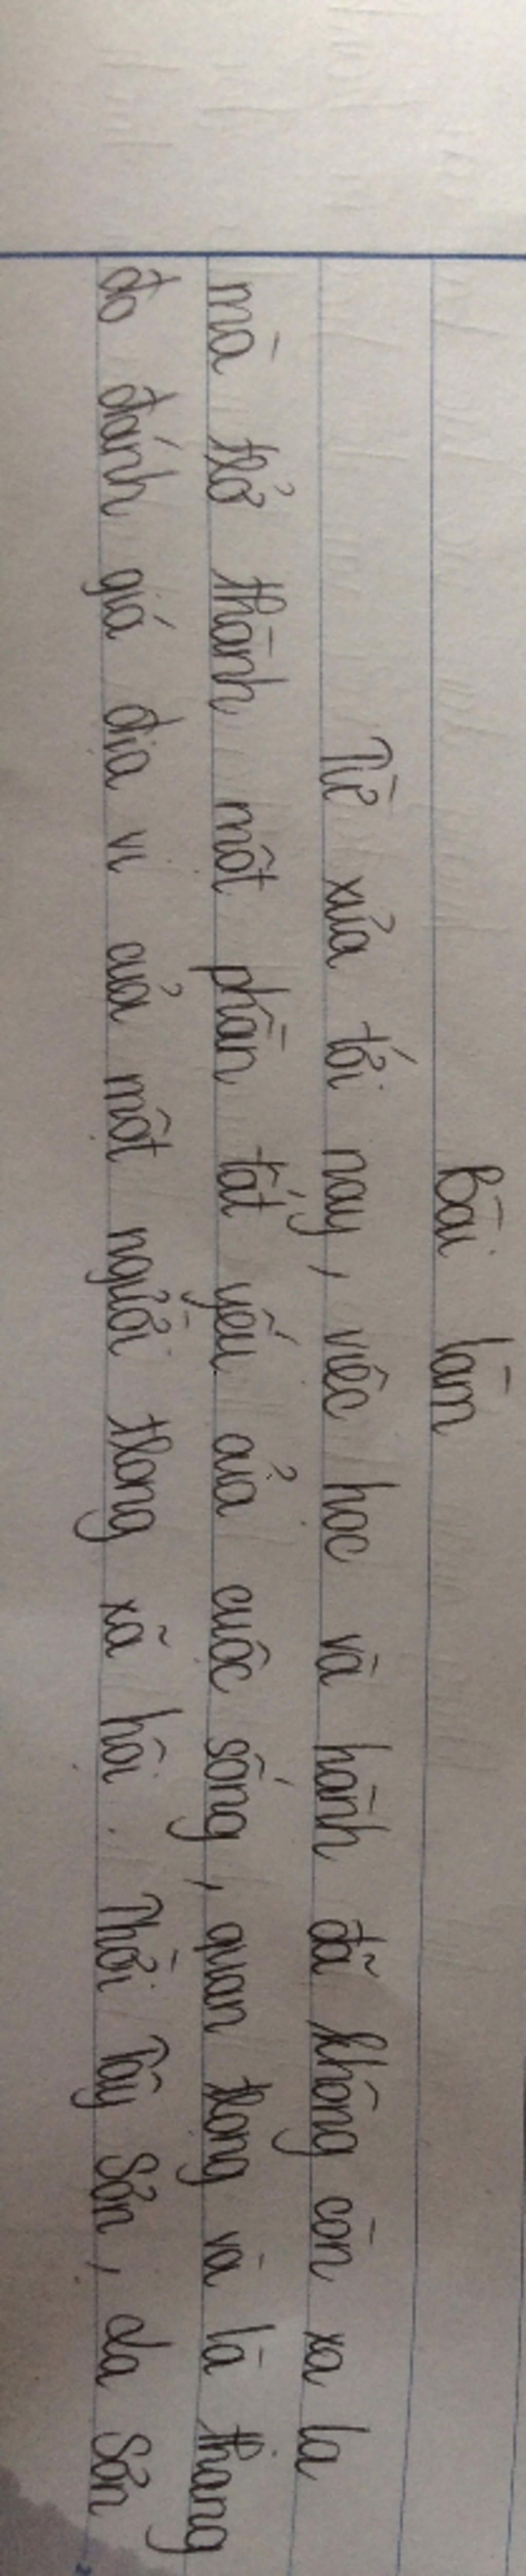 Bài làm
Từ xưa tới nay, việc học và hành đã không còn xa lạ
mà trở thành một phần tất yếu của cuộc sống, quan trọng và là thang
đo đánh giá địa vị của một người trong xã hội. Thời Tây Sơn, La Sơn